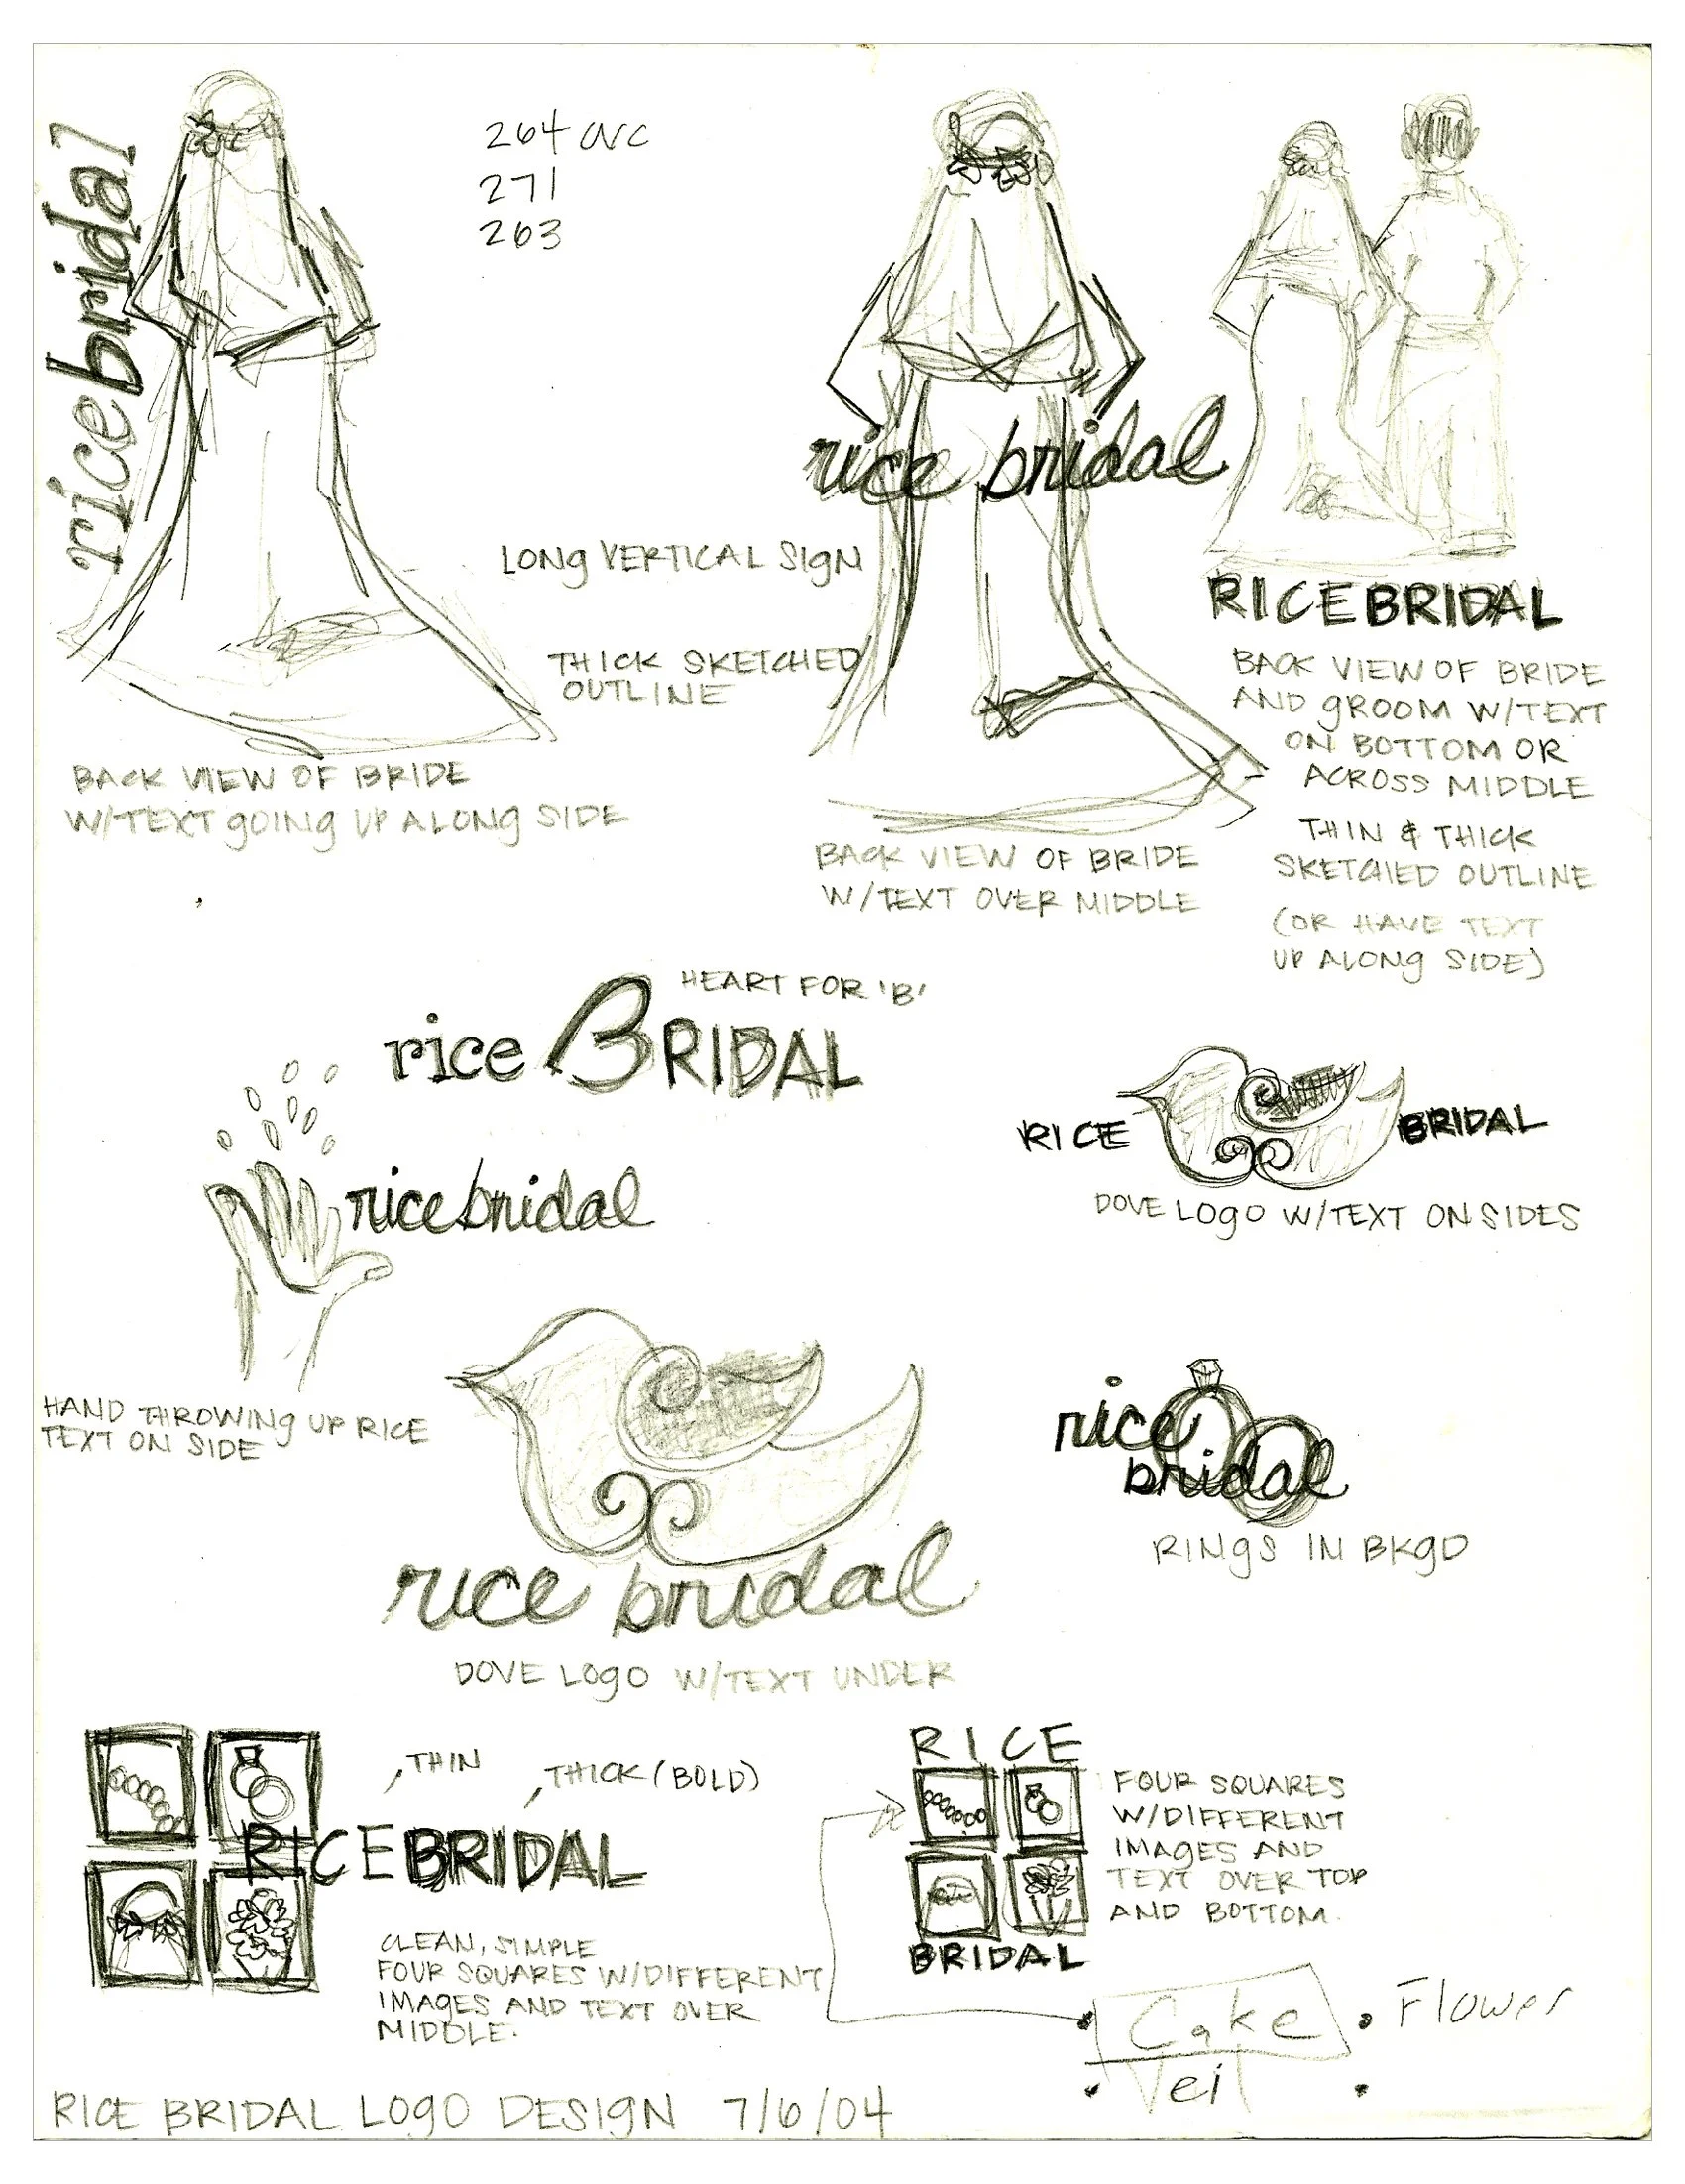 ricebridal
264 CVC
271
263
LONG VERTICAL SIGN
THICK SKETCHED
OUTLINE
BACK VIEW OF BRIDE
W/TEXT GOING UP ALONG SIDE
rice bridal
BACK VIEW OF BRIDE
W/TEXT OVER MIDDLE
RICEBRIDAL
BACK VIEW OF BRIDE
AND GROOM W/TEXT
ON BOTTOM OR
ACROSS MIDDLE
THIN & THICK
SKETCHED OUTLINE
(OR HAVE TEXT
UP ALONG SIDE)
HEART FOR 'B'
rice BRIDAL
ricebridal
HAND THROWING UP RICE
TEXT ON SIDE
RICE BRIDAL
DOVE LOGO W/TEXT ON SIDES
rice bridal
DOVE LOGO W/TEXT UNDER
rice
bridal
RINGS IN BKGD
THIN
THICK (BOLD)
RICEBRIDAL
CLEAN, SIMPLE
FOUR SQUARES W/DIFFERENT
IMAGES AND TEXT OVER
MIDDLE.
RICE
BRIDAL
FOUR SQUARES
W/DIFFERENT
IMAGES AND
TEXT OVER TOP
AND BOTTOM.
Cake
Flower
Veil
RICE BRIDAL LOGO DESIGN 7/6/04